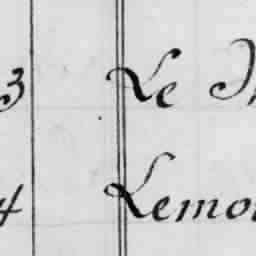 3 Le
4 Lemo